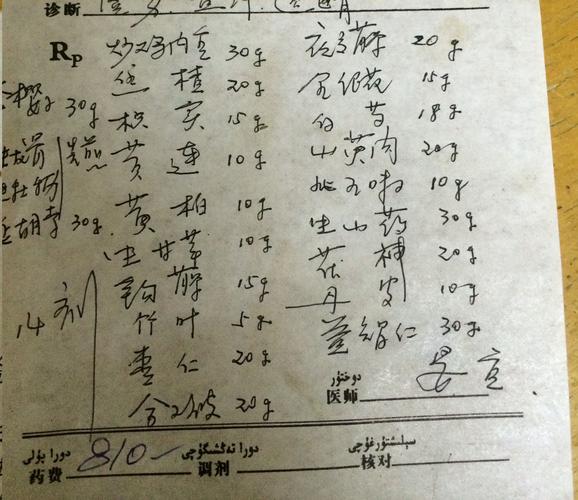 诊断
Rp 炒鸡内金 30g 夜交藤 20g
桂 20g 金银花 15g
30g 枳实 15g 白芍 18g
龙骨 黄连 10g 山萸肉 20g
牡蛎 黄柏 10g 北五味 10g
胡索 30g 生甘草 10g 生山药 30g
钩藤 15g 茯神 20g
14剂 竹叶 5g 丹皮 10g
枣仁 20g 薏苡仁 30g
合欢皮 20g
دوختۇر
医师
دورا پۇلى دورا تەڭشىگۈچى سېلىشتۇرغۇچى
药费 810- 调剂 核对